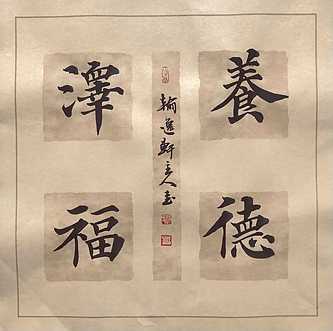 養德
澤福
翰進軒主人書